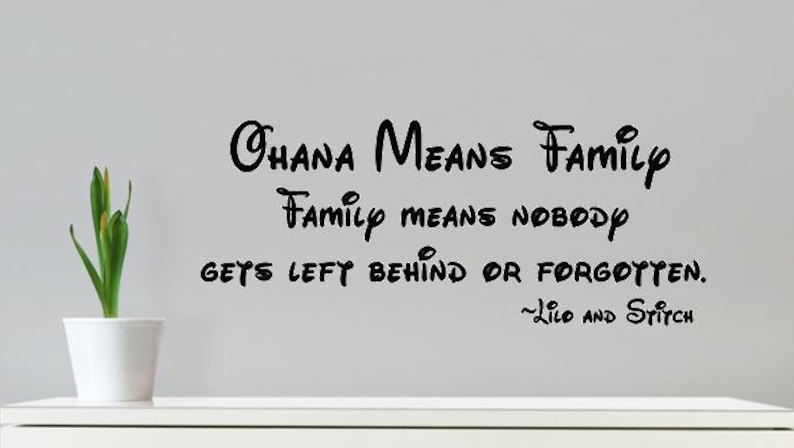 Ohana Means Family
Family means nobody
gets left behind or forgotten.
~Lilo and Stitch